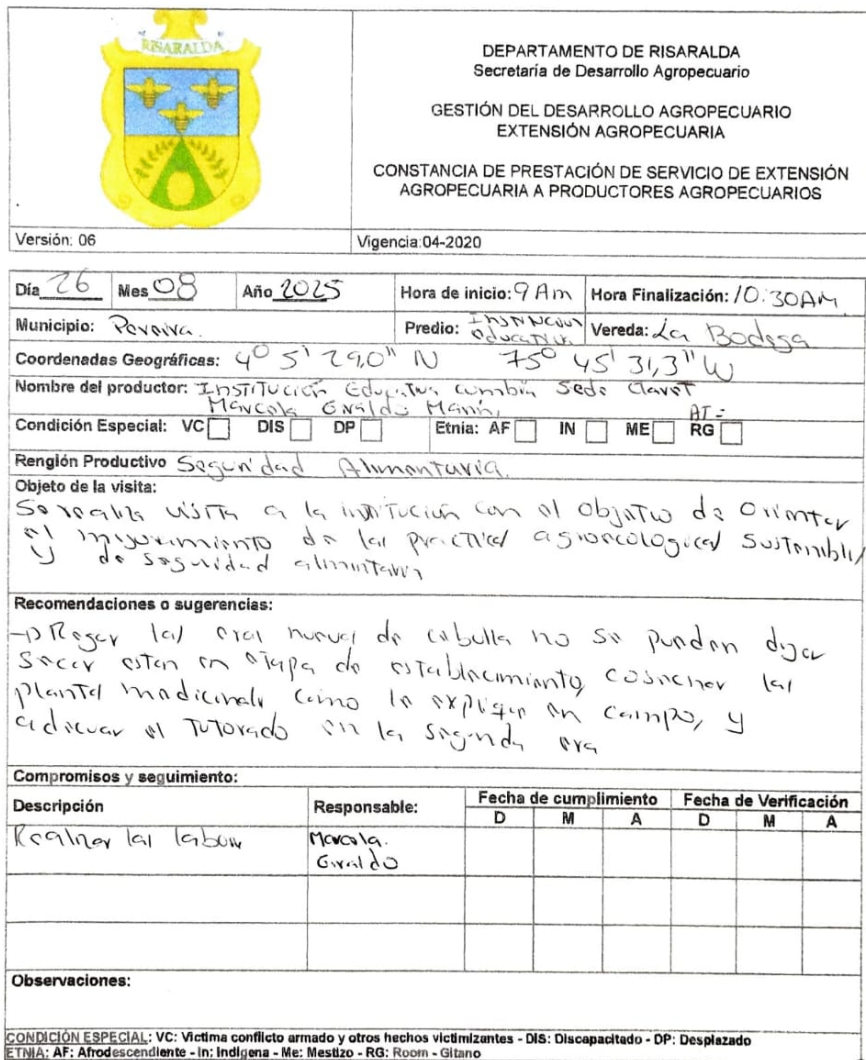 RISARALDA
DEPARTAMENTO DE RISARALDA
Secretaría de Desarrollo Agropecuario
GESTIÓN DEL DESARROLLO AGROPECUARIO
EXTENSIÓN AGROPECUARIA
CONSTANCIA DE PRESTACIÓN DE SERVICIO DE EXTENSIÓN
AGROPECUARIA A PRODUCTORES AGROPECUARIOS
Versión: 06 Vigencia:04-2020
Día 26 Mes 08 Año 2025 Hora de inicio: 9 Am Hora Finalización: 10:30AM
Municipio: Pereira. Predio: Institucion educativa Vereda: La Bodega
Coordenadas Geográficas: 4° 5' 29,0" N 75° 45' 31,3" W
Nombre del productor: Institución Educativa cumbia Sede Claret
Marcela Giraldo Marin,
Condición Especial: VC DIS DP Etnia: AF IN ME RG AI=
Renglón Productivo Seguridad Alimentaria.
Objeto de la visita:
Se realiza visita a la institución con el objetivo de Orientar
el mejoramiento de las practicas agroecologicas Sustenibles
y de seguridad alimentaria
Recomendaciones o sugerencias:
→ Regar las eras nuevas de cebolla no se pueden dejar
secar estan en etapa de establecimiento, cosechar las
plantas medicinales como le explique en campo, y
adecuar el tutorado en la segunda era
Compromisos y seguimiento:
Descripción Responsable: Fecha de cumplimiento Fecha de Verificación
D M A D M A
Realizar las labores Marcela.
Giraldo
Observaciones:
CONDICIÓN ESPECIAL: VC: Victima conflicto armado y otros hechos victimizantes - DIS: Discapacitado - DP: Desplazado
ETNIA: AF: Afrodescendiente - In: Indígena - Me: Mestizo - RG: Room - Gitano